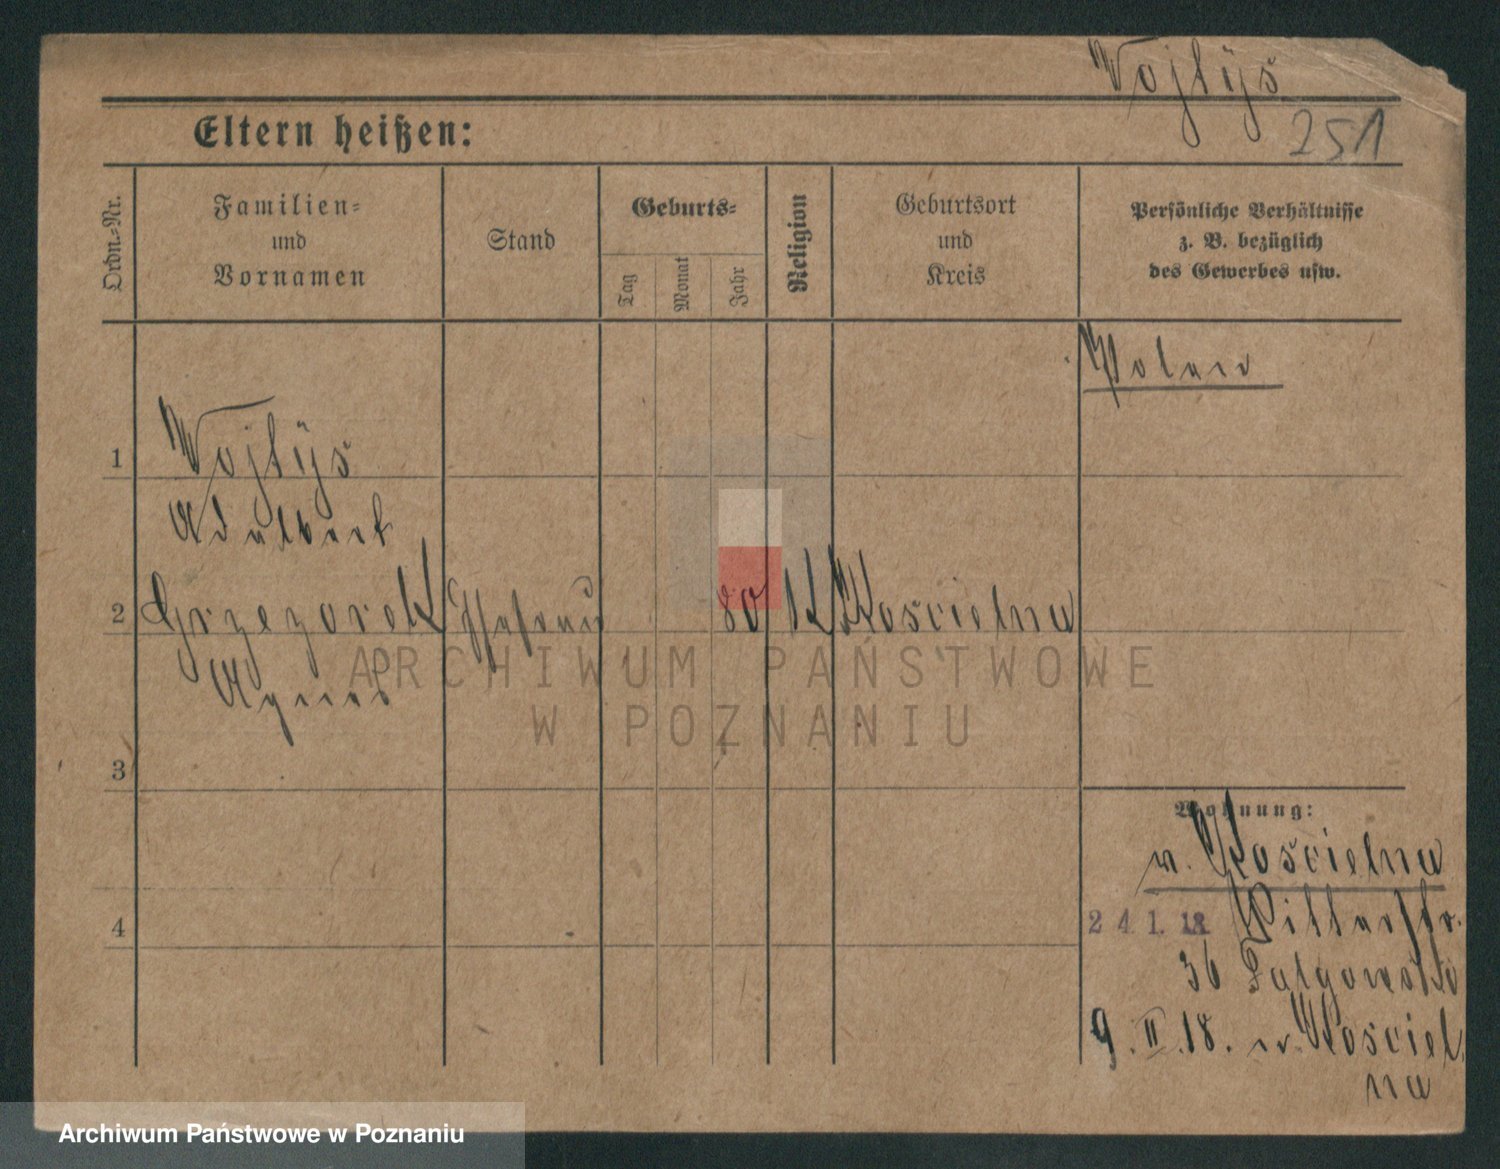 Wojtÿs
251
Eltern heißen:
Ordn.-Nr.
Familien-
und
Vornamen
Stand
Geburts-
Tag
Monat
Jahr
Religion
Geburtsort
und
Kreis
Persönliche Verhältnisse
z. B. bezüglich
des Gewerbes usw.
Polen
1
Wojtÿs
Adalbert
2
Grzegorek
80
K
Koscielna
Agnes
3
Wohnung:
n. Koscielna
4
24. 1. 18
Ritterstr.
36
9. II. 18. n. Kosciel
na
ARCHIWUM PAŃSTWOWE
W POZNANIU
Archiwum Państwowe w Poznaniu